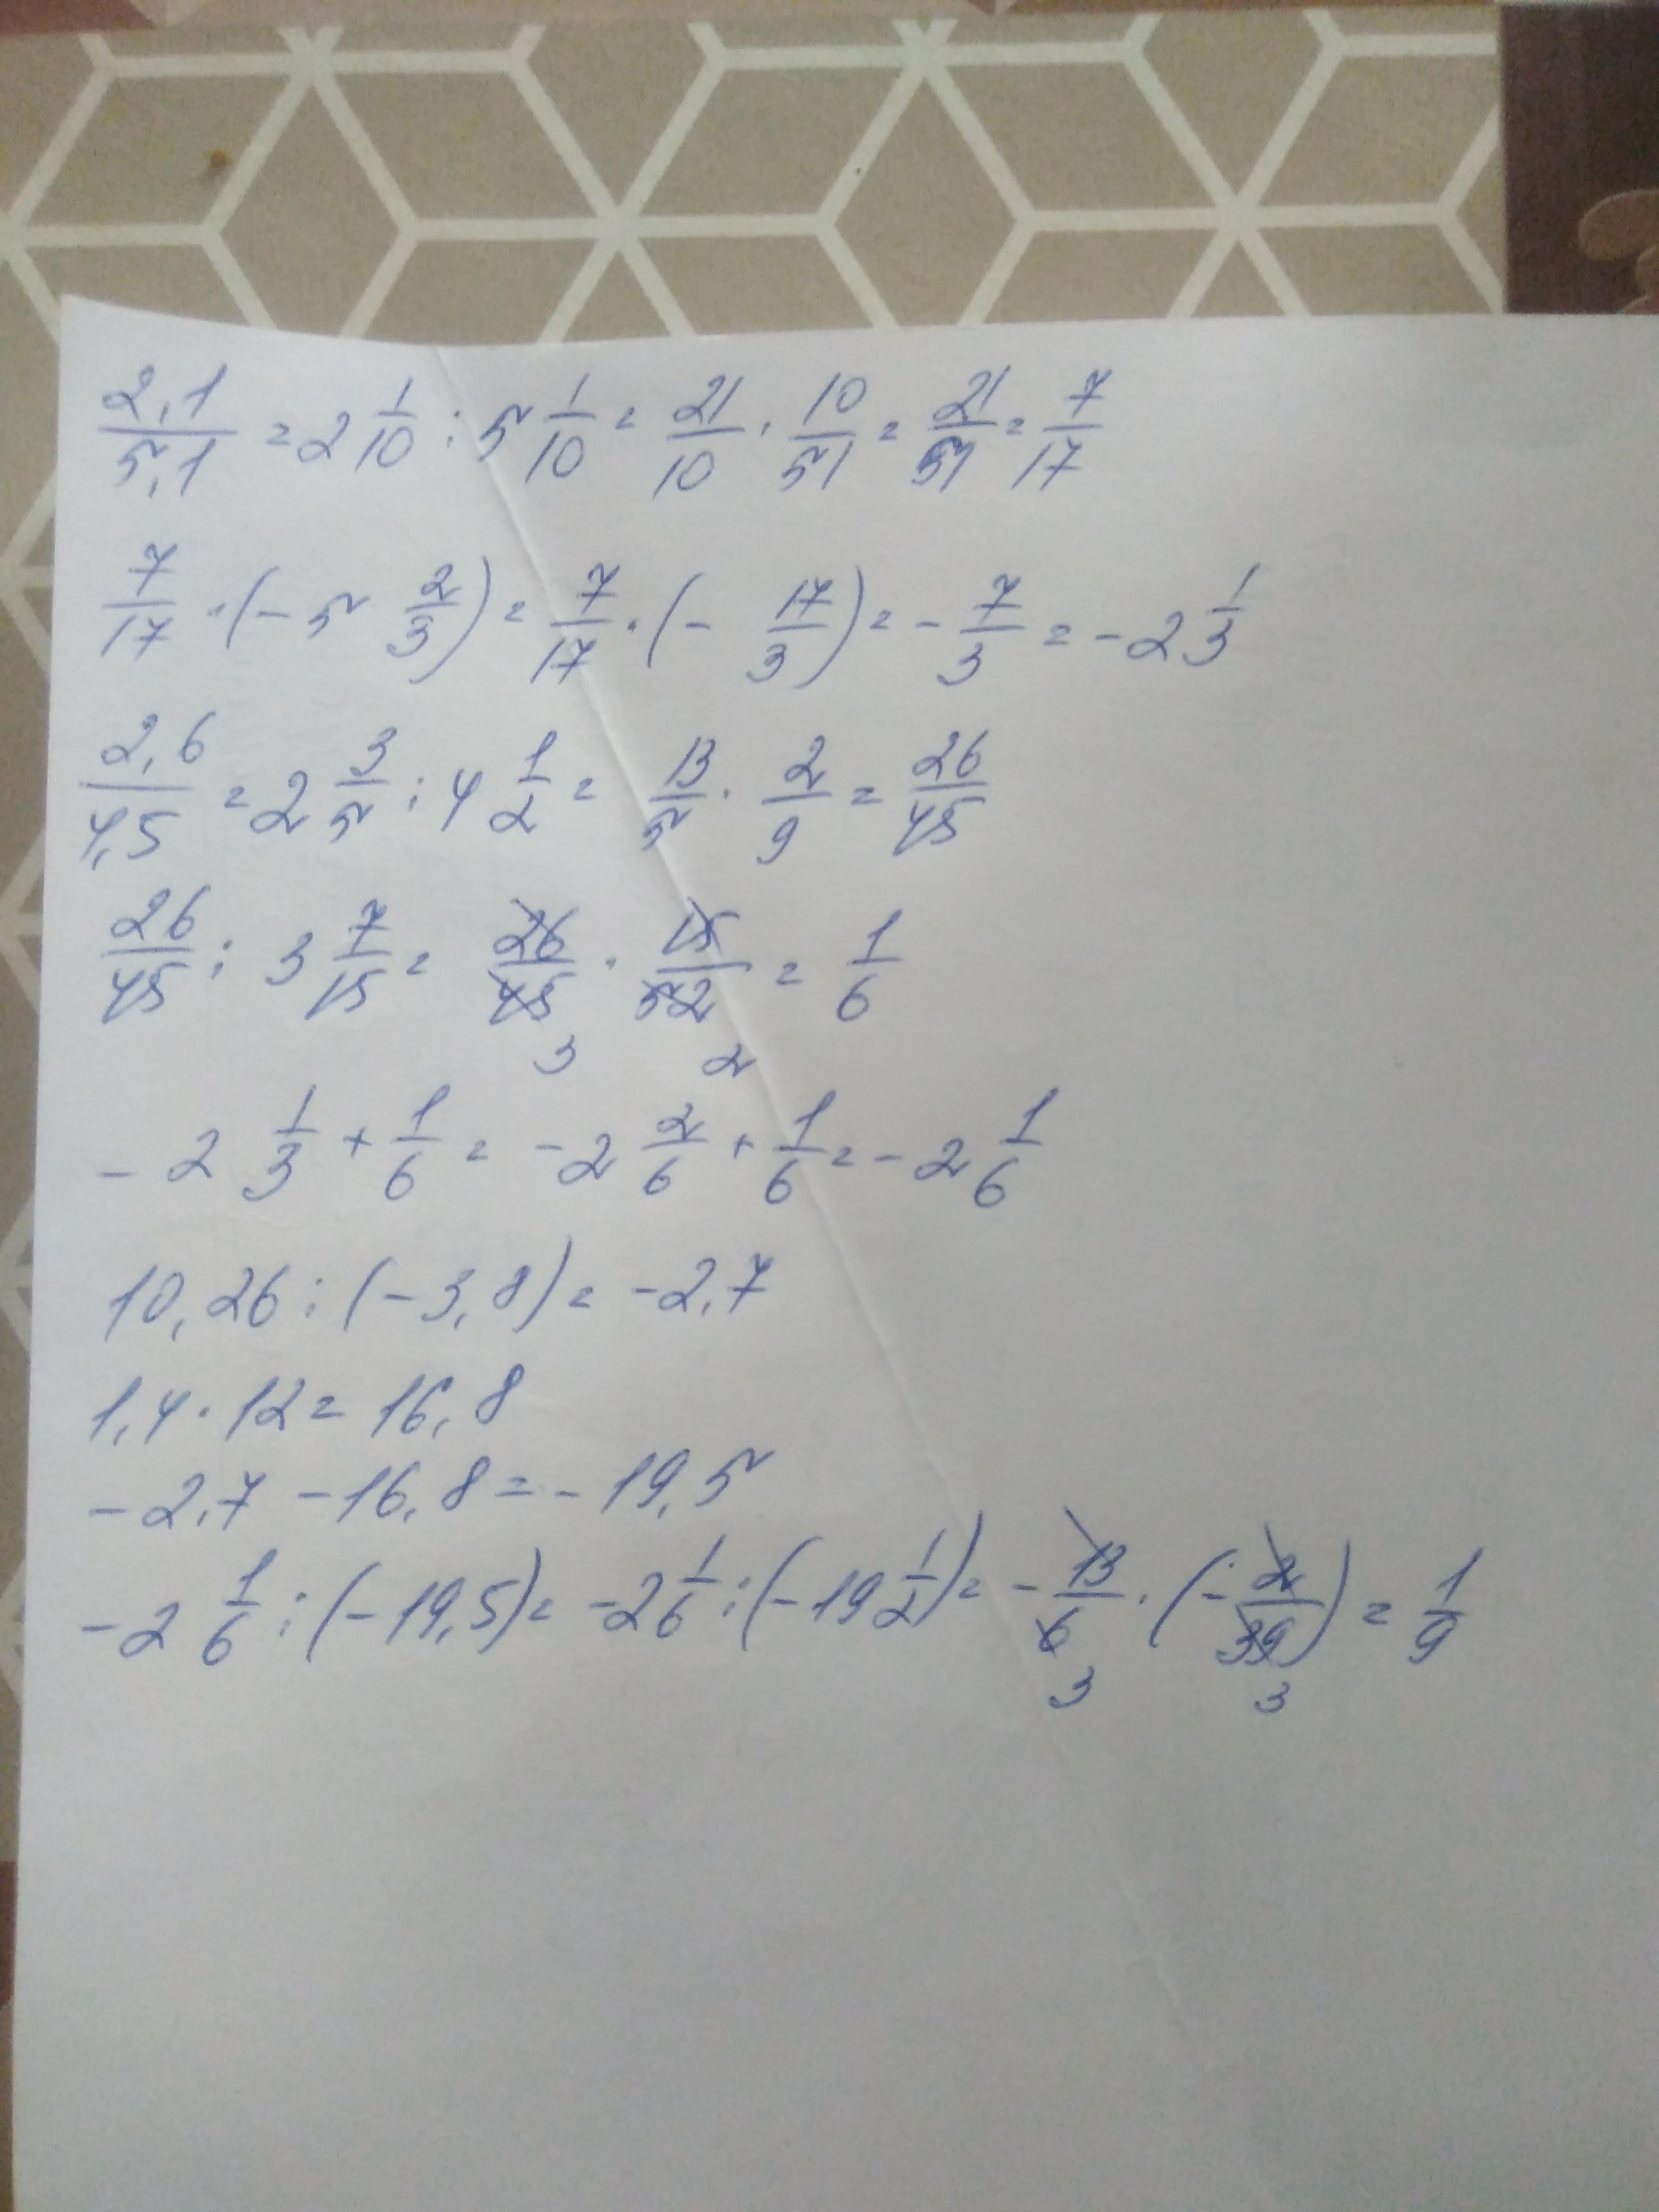 2,1/5,1 = 2 1/10 : 5 1/10 = 21/10 · 10/51 = 21/51 = 7/17
7/17 · (- 5 2/3) = 7/17 · (- 17/3) = - 7/3 = - 2 1/3
2,6/4,5 = 2 3/5 : 4 1/2 = 13/5 · 2/9 = 26/45
26/45 : 3 7/15 = 26/45 · 15/52 = 1/6
3 2
- 2 1/3 + 1/6 = - 2 2/6 + 1/6 = - 2 1/6
10,26 : (- 3,8) = - 2,7
1,4 · 12 = 16,8
- 2,7 - 16,8 = - 19,5
- 2 1/6 : (- 19,5) = - 2 1/6 : (- 19 1/2) = - 13/6 · (- 2/39) = 1/9
3 3